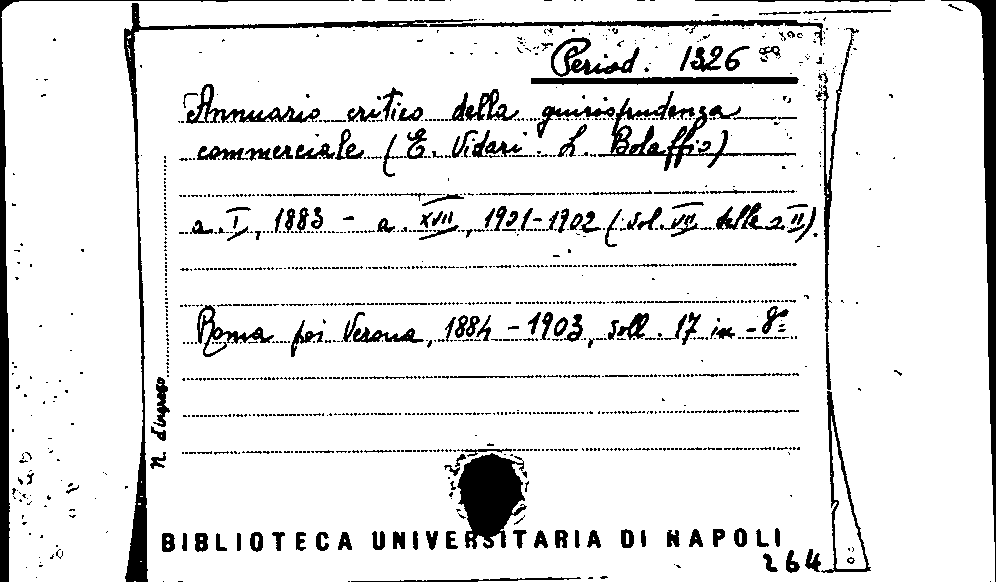 Period. 1326
Annuario critico della giurisprudenza
commerciale (E. Vidari. L. Bolaffio)
a. I, 1883 - a. XVII, 1901-1902 (vol. VII della s. II).
Roma poi Verona, 1884 - 1903, voll. 17 in-8º
N. d'ingresso
BIBLIOTECA UNIVERSITARIA DI NAPOLI
264